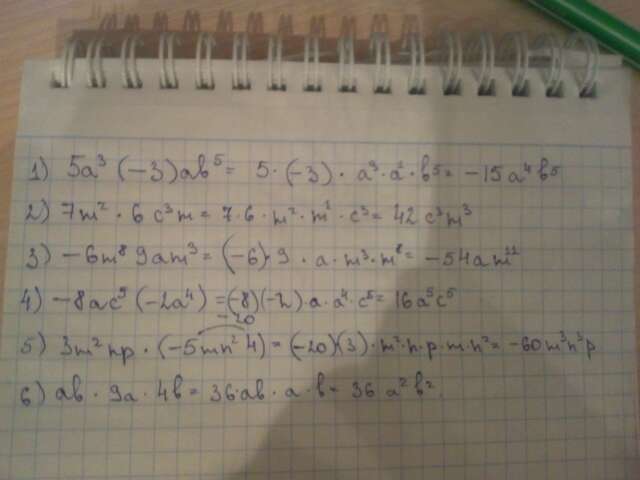 1) 5a³ (−3)ab⁵ = 5·(−3)·a³·a¹·b⁵ = −15a⁴b⁵
2) 7m²·6c³m = 7·6·m²·m¹·c³ = 42c³m³
3) −6m⁸ 9am³ = (−6)·9·a·m³·m⁸ = −54am¹¹
4) −8ac⁵ (−2a⁴) = (−8)(−2)·a·a⁴·c⁵ = 16a⁵c⁵
−20
5) 3m²np·(−5mn²4) = (−20)(3)·m²·n·p·m·n² = −60m³n³p
6) ab·9a·4b = 36·ab·a·b = 36a²b².